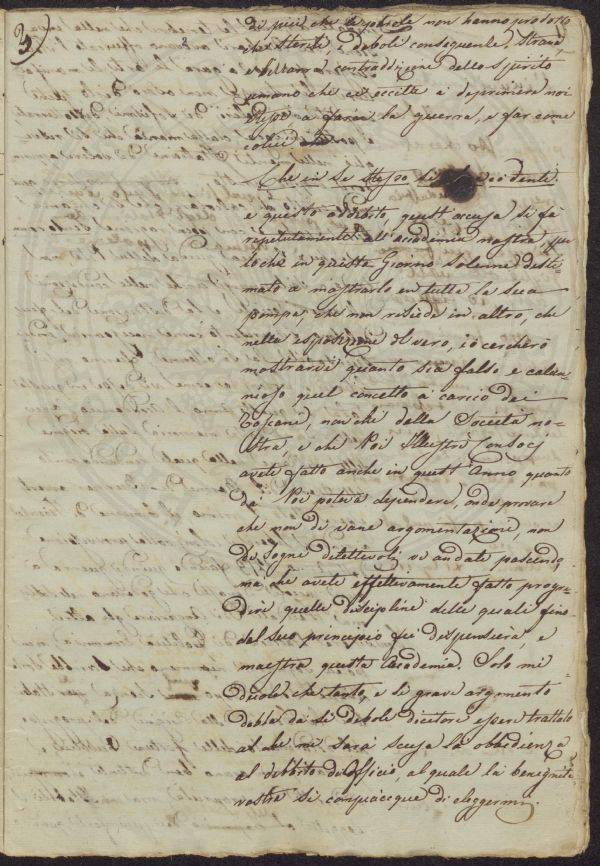 3)
di più che le parole non hanno prodotto
che sterili, e deboli conseguenze, strana,
e bizzarra contraddizione dello spirito
umano che ci eccita a deprimere noi
stessi a farci la guerra, e far come
colui
Che in se stesso si dente.
e questo addebito, quest'accusa si fà
repetutamente all'accademia nostra, per
lochè in questo Giorno solenne desti-
nato a mostrarlo in tutta la sua
pompa, che non risiede in altro, che
nella esposizione del vero, io cercherò
mostrarvi quanto sia falso e calun-
nioso quel concetto a carico dei
Toscani, non che della Società no-
stra, e che Voi Illustri Consocj
avete fatto anche in quest'Anno quanto
da Voi poteva dependere, onde provare
che non di vane argomentazioni, non
di sogni dilettevoli vi andate pascendo,
ma che avete effettivamente fatto progre-
dire quelle discipline delle quali fino
dal suo principio fù dispensiera, e
maestra questa Accademia. Solo mi
duole che tanto, e sì grave argomento
debba da sì debole dicitore esser trattato
al che mi sarà scusa la obbedienza
al debbito di Officio, al quale la benignità
vostra si compiacque di eleggermi.